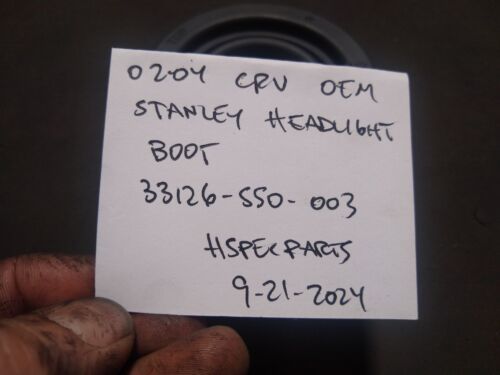 02-04 CRV OEM
STANLEY HEADLIGHT
BOOT
33126-S50-003
HSPECPARTS
9-21-2024